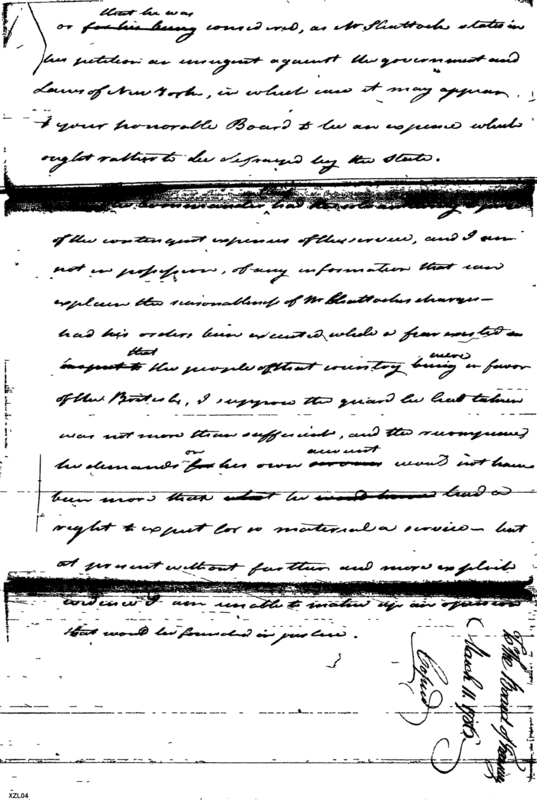 that he was
or for his being considered, as Mr Shattock states in
his petition an insurgent against the government and
Laws of New York, in which case it may appear
to your honorable Board to be an expence which
ought rather to be defrayed by the State.
had the
of the contingent expences of the service, and I am
not in possession, of any information that can
explain the reasonableness of Mr Shattocks charges—
had his orders been executed while a fear existed
that were
in respect to the people of that country being in favor
of the British, I suppose the guard he had taken
was not more than sufficient, and the recompence
on account
he demands for his own services would not have
been more than what he would have had a
right to expect for so material a service— but
at present without further and more explicit
evidence I am unable to make up an opinion
that would be founded in justice.
To the Board of Treasury
March 11. 1786
Copied
XZL04